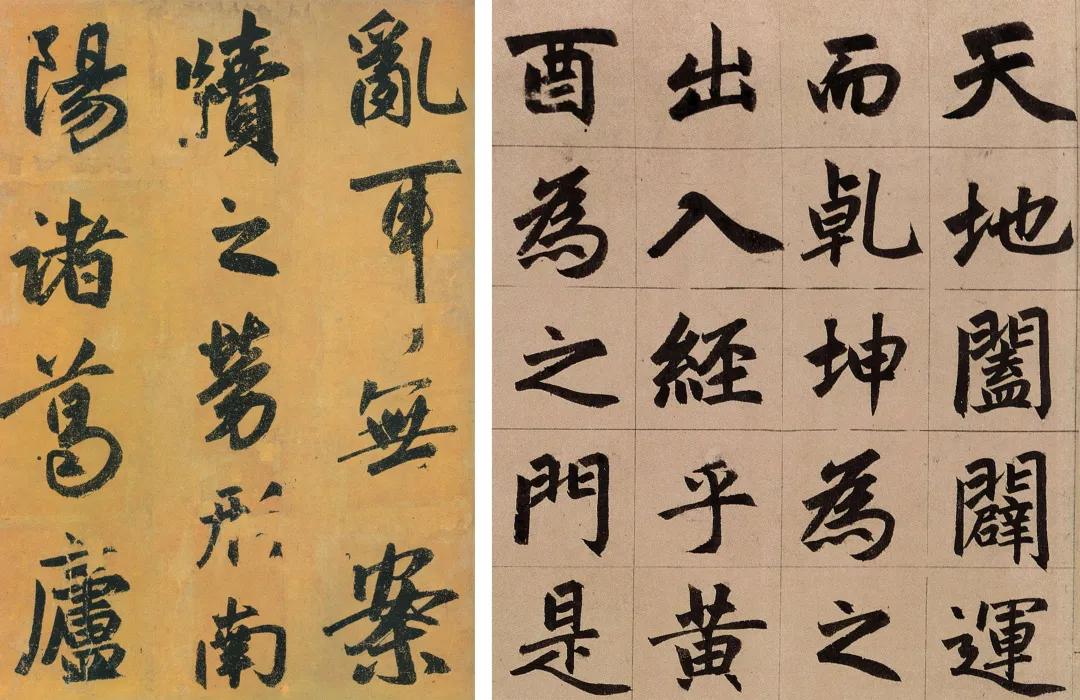 亂耳無案
牘之勞形南
陽諸葛廬
天地闔闢運
而乾坤為之
出入經乎黃
酉為之門是